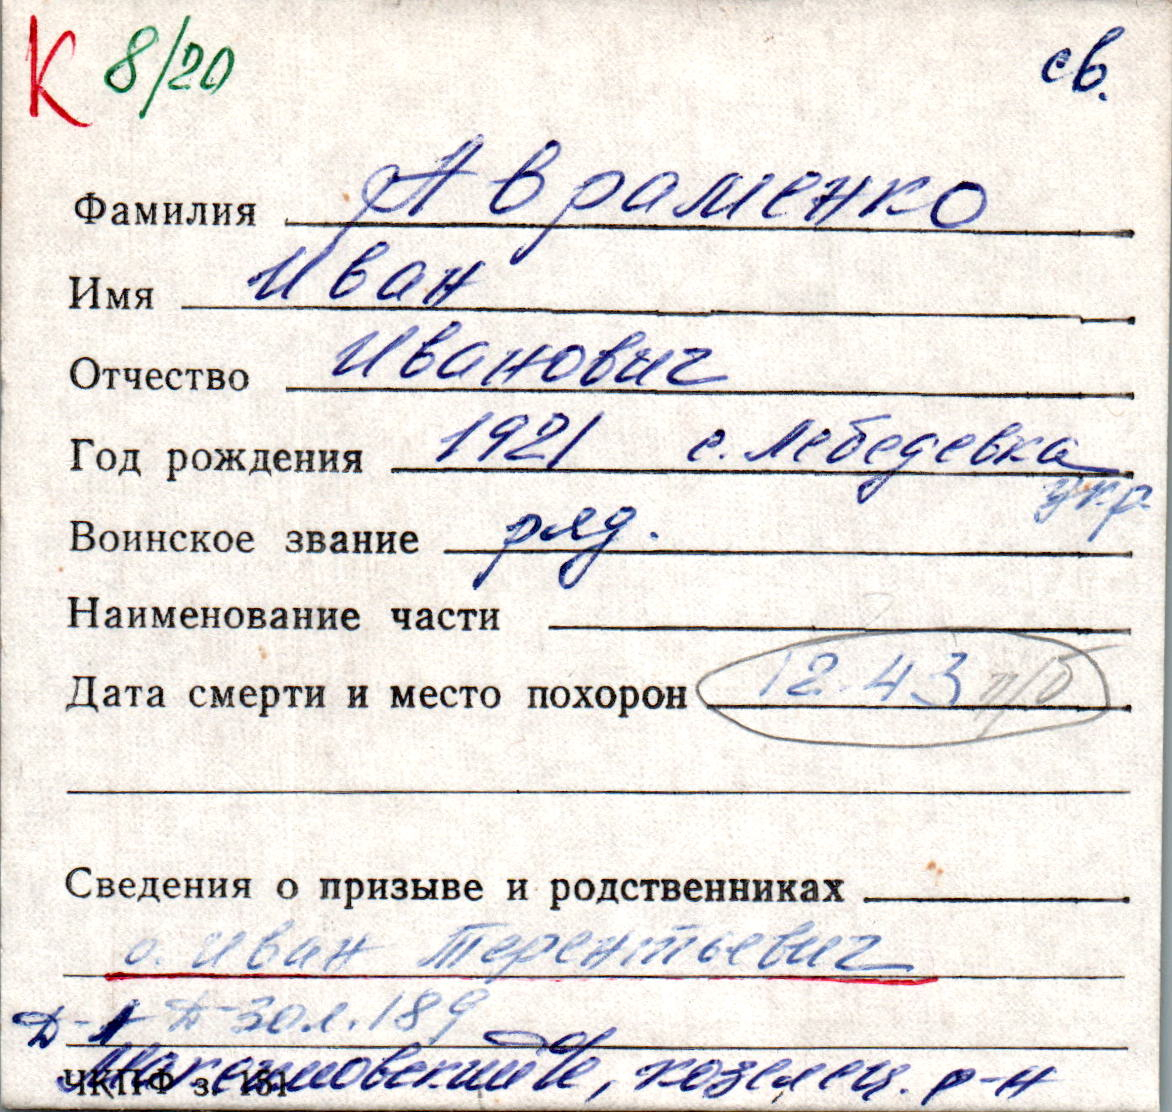 К 8/20 св.
Фамилия Авраменко
Имя Иван
Отчество Иванович
Год рождения 1921 с. Лебедевка
укр
Воинское звание ряд.
Наименование части
Дата смерти и место похорон 12.43 п/б
Сведения о призыве и родственниках
о. Иван Терентьевич
Д-л Д-30 л. 189
козелец. р-н
ЧКПФ з. 181